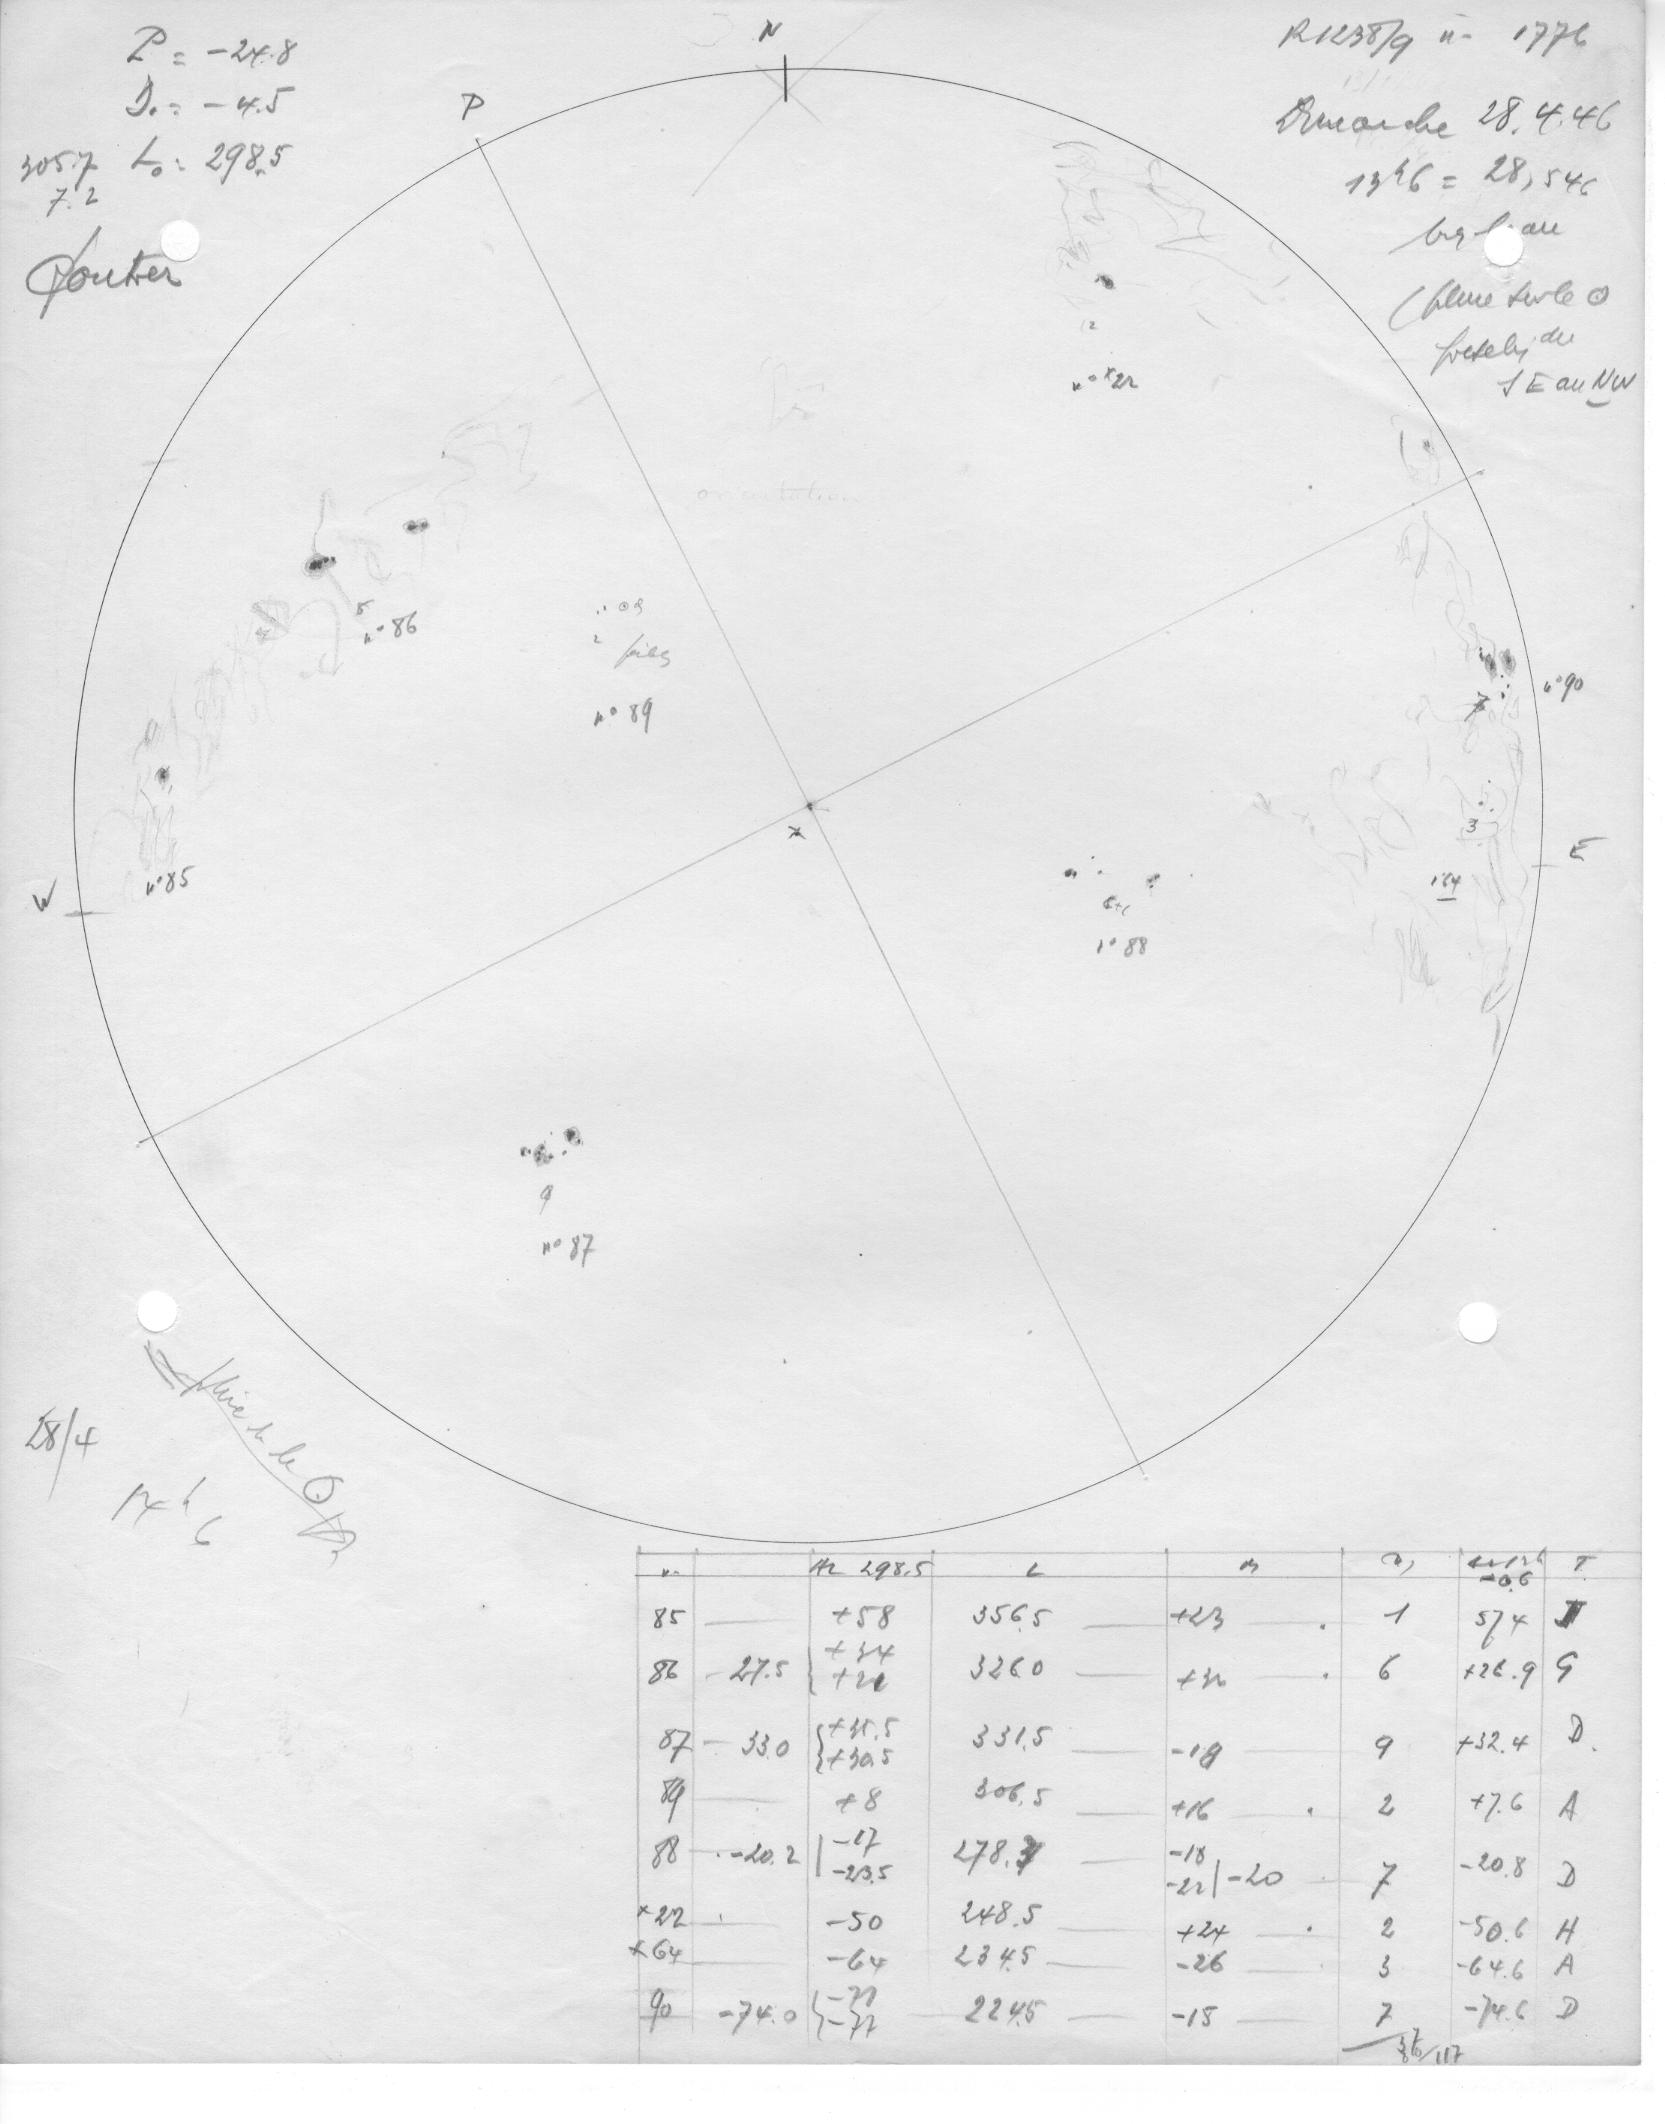 P = -24.8
D₀ = -4.5
305.7 L₀ = 298.5
7.2
N
P
R1238/9 n- 1776
Dimanche 28.4.46
13h6 = 28,546
(plume sur le ⊙
du
SE au NW
orientation
2
n° *22
5
n° 86
2
n° 89
n° 90
7
3
*64
E
W
n° 85
6+1
n° 88
9
n° 87
28/4
n- AL 298.5 L T
85 — +58 356.5 — +23 1 57.4 J
86 - 27.5 { +34 +21 326.0 — 6 +26.9 G
87 - 33.0 { +35.5 +30.5 331.5 — -19 9 +32.4 D.
89 — +8 306.5 — +16 2 +7.6 A
88 - -20.2 | -17 -23.5 278.3 — -18 -22 | -20 7 -20.8 D
*22 — -50 248.5 — +24 2 -50.6 H
*64 — -64 234.5 — -26 3 -64.6 A
90 -74.0 { -71 -77 224.5 — -15 7 -74.6 D
37/117